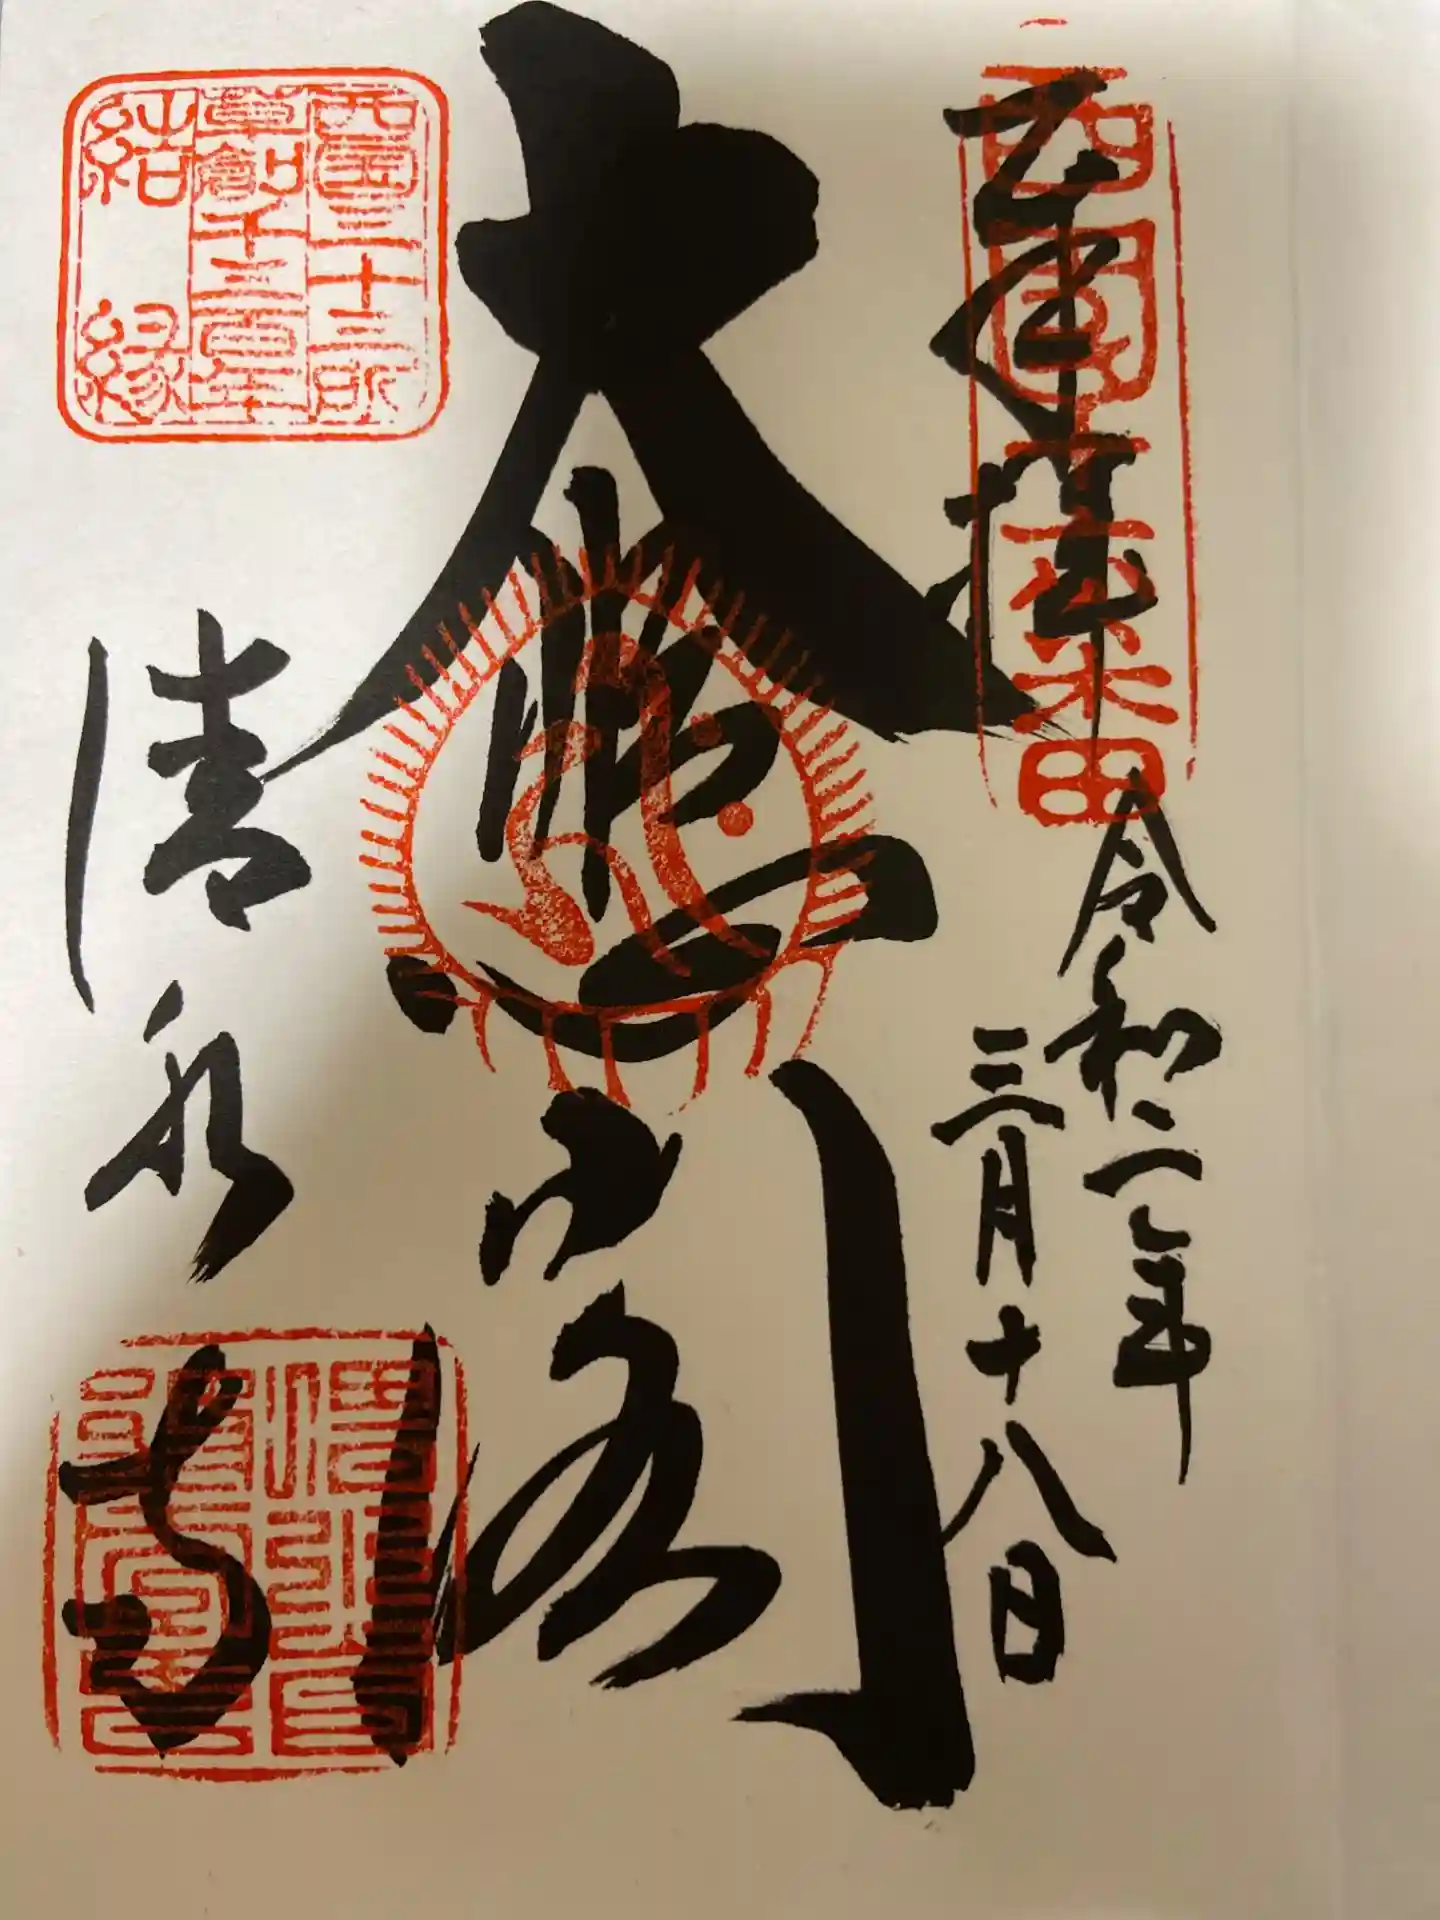 奉拝
令和二年
三月十八日
西國十六番
大悲閣
清水寺
西国三十三所
草創千三百年
結縁